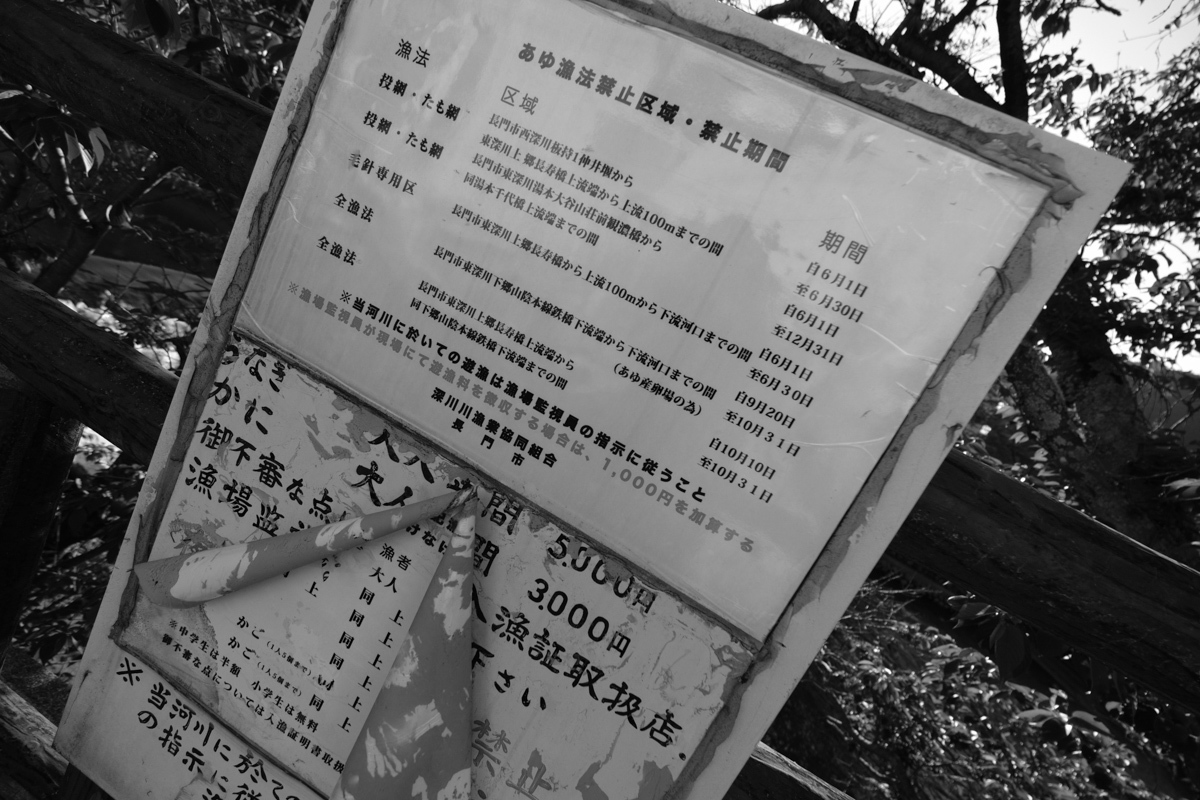 あゆ漁法禁止区域・禁止期間
漁法 区域 期間
投網・たも網 長門市西深川板持1仲井堰から 自6月1日
東深川上郷長寿橋上流端から上流100mまでの間 至6月30日
投網・たも網 長門市東深川湯本大谷山荘前観瀑橋から 自6月1日
同湯本千代橋上流端までの間 至12月31日
毛針専用区 長門市東深川上郷長寿橋から上流100mから下流河口までの間 自6月1日
至6月30日
全漁法 長門市東深川下郷山陰本線鉄橋下流端から下流河口までの間 自9月20日
(あゆ産卵場の為) 至10月31日
全漁法 長門市東深川上郷長寿橋上流端から 自10月10日
同下郷山陰本線鉄橋下流端までの間 至10月31日
※当河川に於いての遊漁は漁場監視員の指示に従うこと
※漁場監視員が現場にて遊漁料を徴収する場合は、1,000円を加算する
深川川漁業協同組合
長門市
うなぎ
かに
御不審な点
漁場監
大人
間 5,000円
間 3,000円
入漁証取扱店
下さい
禁止
漁者
大人 上
同 上
同 上
同 上
同 上
かご(1人5個まで) 同 上
かご(1人5個まで) 同 上
※中学生は半額 小学生は無料
御不審な点については入漁証明書取扱
※当河川に於ての
の指示に従